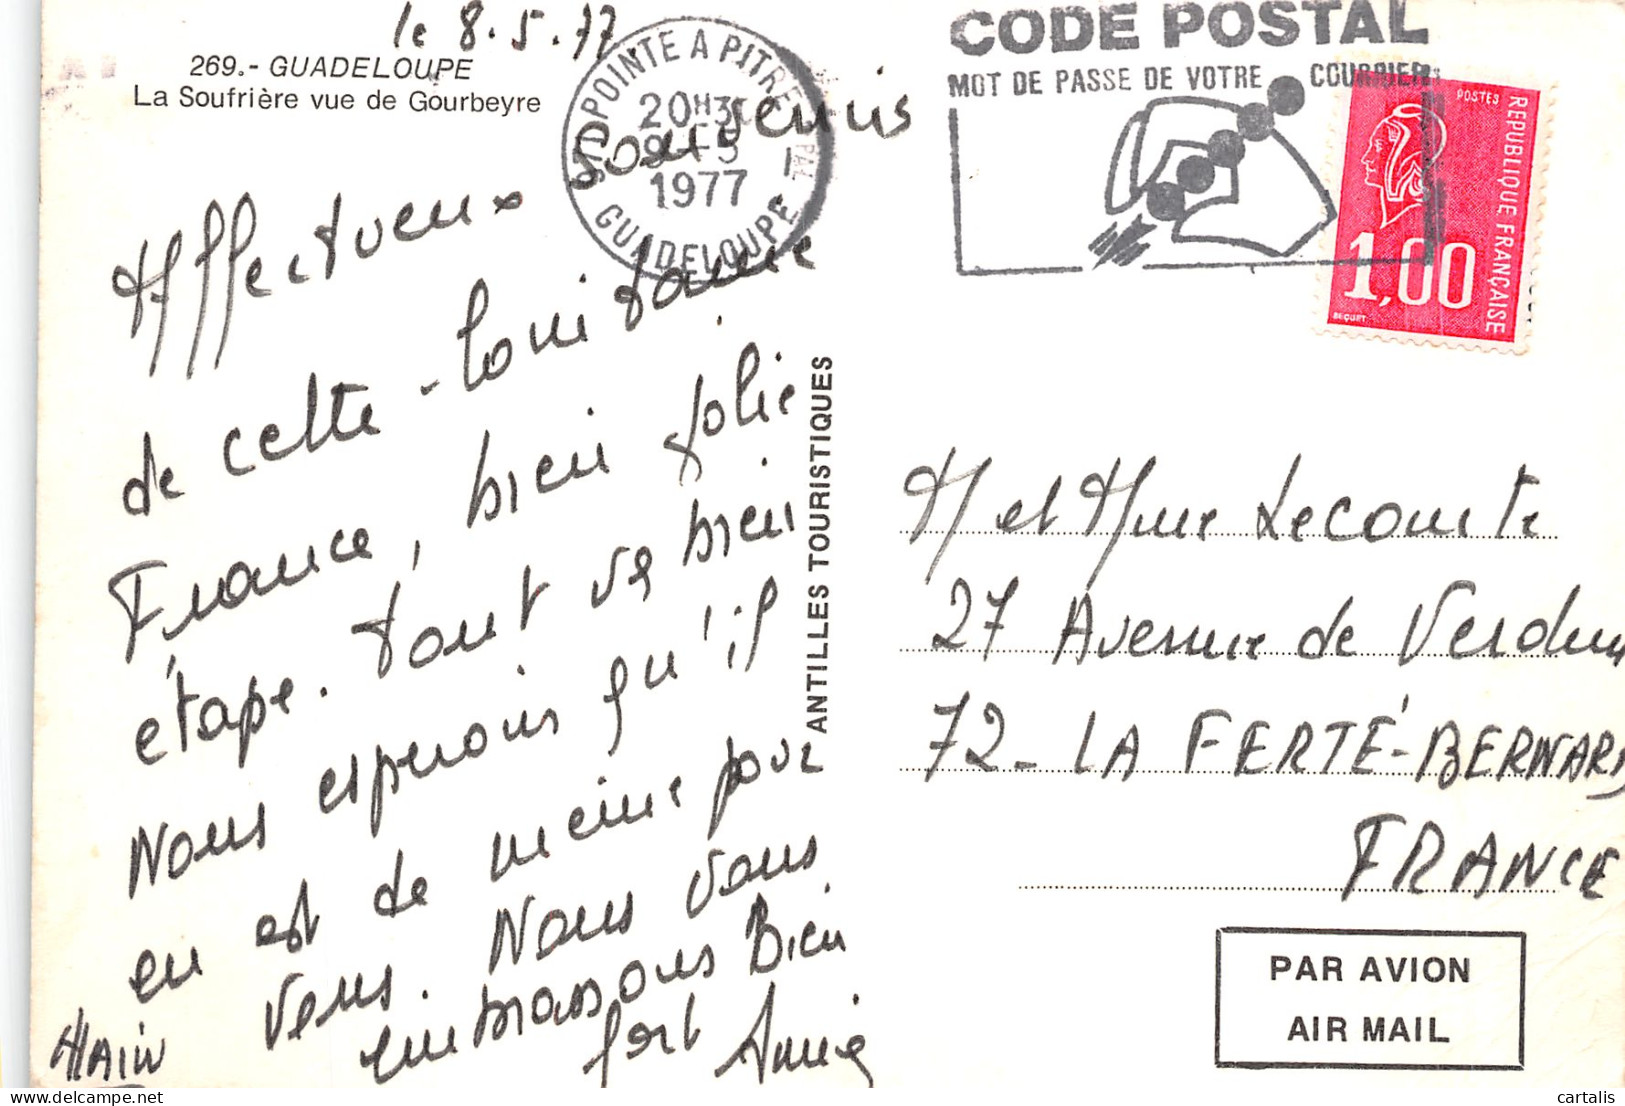 le 8.5.77
269.- GUADELOUPE
La Soufrière vue de Gourbeyre
Affectueux souvenirs
de cette lointaine
France, bien jolie
étape. Tout va bien
Nous espérons qu'il
en est de même pour
vous. Nous vous
embrassons Bien
fort
Annie
Alain
POINTE A PITRE PPAL
20H30
9-5
1977
GUADELOUPE
CODE POSTAL
MOT DE PASSE DE VOTRE COURRIER
POSTES
REPUBLIQUE FRANÇAISE
1,00
BEQUET
ANTILLES TOURISTIQUES
M et Mme Lecomte
27 Avenue de Verdun
72 - LA FERTÉ-BERNARD
FRANCE
PAR AVION
AIR MAIL
cartalis